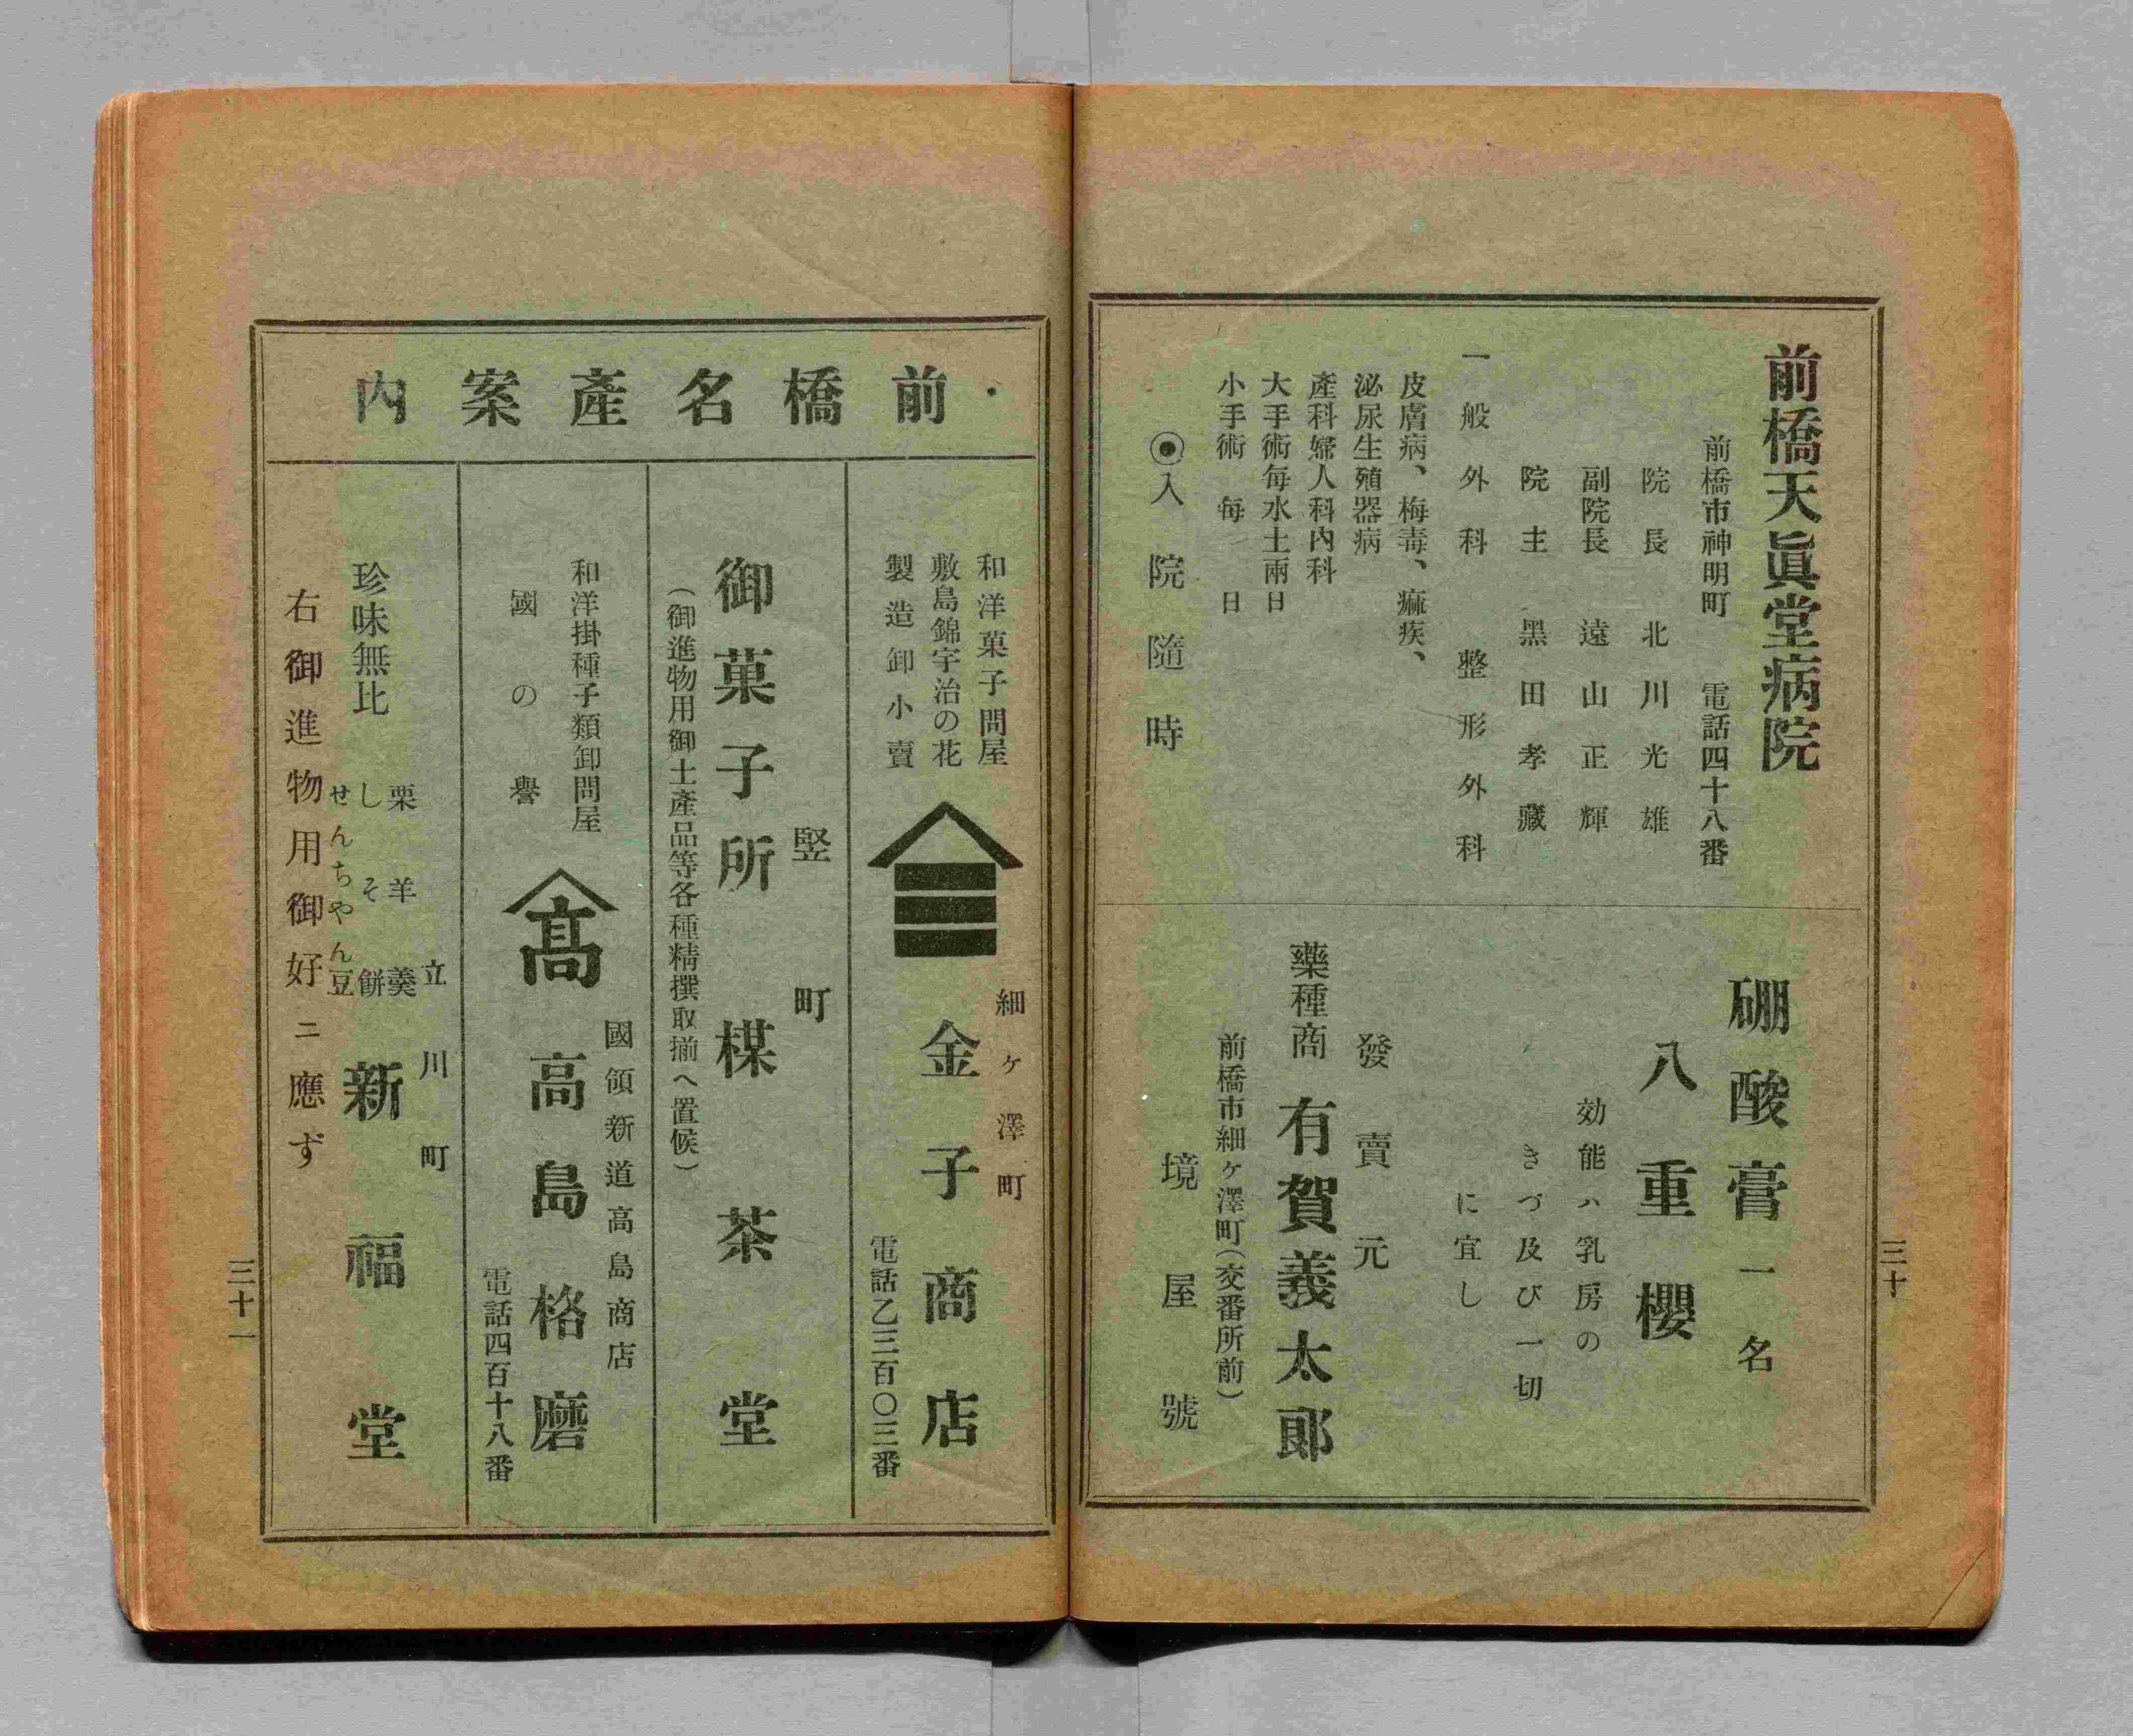 前橋天眞堂病院
前橋市神明町　電話四十八番
院長　北川光雄
副院長　遠山正輝
院主　黑田孝藏
一般外科　整形外科
皮膚病、梅毒、痲疾、
泌尿生殖器病
產科婦人科內科
大手術每水土兩日
小手術每日
◉入院隨時
硼酸膏一名
八重櫻
効能ハ乳房の
きづ及び一切
に宜し
發賣元
藥種商　有賀義太郞
前橋市細ヶ澤町（交番所前）
境屋號
三十
前橋名產案內
和洋菓子問屋
敷島錦宇治の花
製造卸小賣
細ヶ澤町
金子商店
電話乙三百〇三番
竪町
御菓子所　楳茶堂
（御進物用御土產品等各種精撰取揃へ置候）
和洋掛種子類卸問屋
國の譽
髙
國領新道高島商店
高島格磨
電話四百十八番
立川町
珍味無比
栗羊羹
しそ餅
せんちやん豆
新福堂
右御進物用御好ニ應ず
三十一